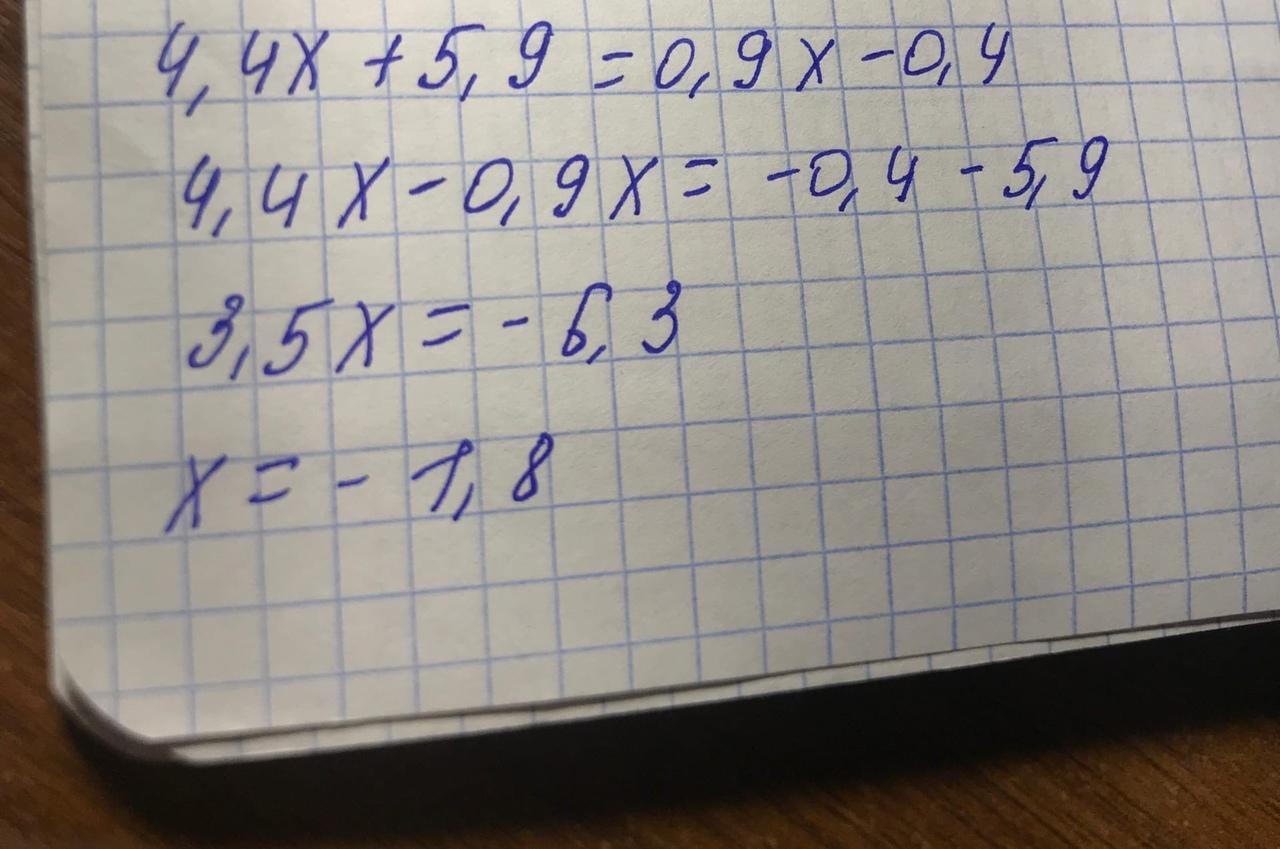 4,4x + 5,9 = 0,9x - 0,4
4,4x - 0,9x = -0,4 - 5,9
3,5x = - 6,3
x = - 1,8